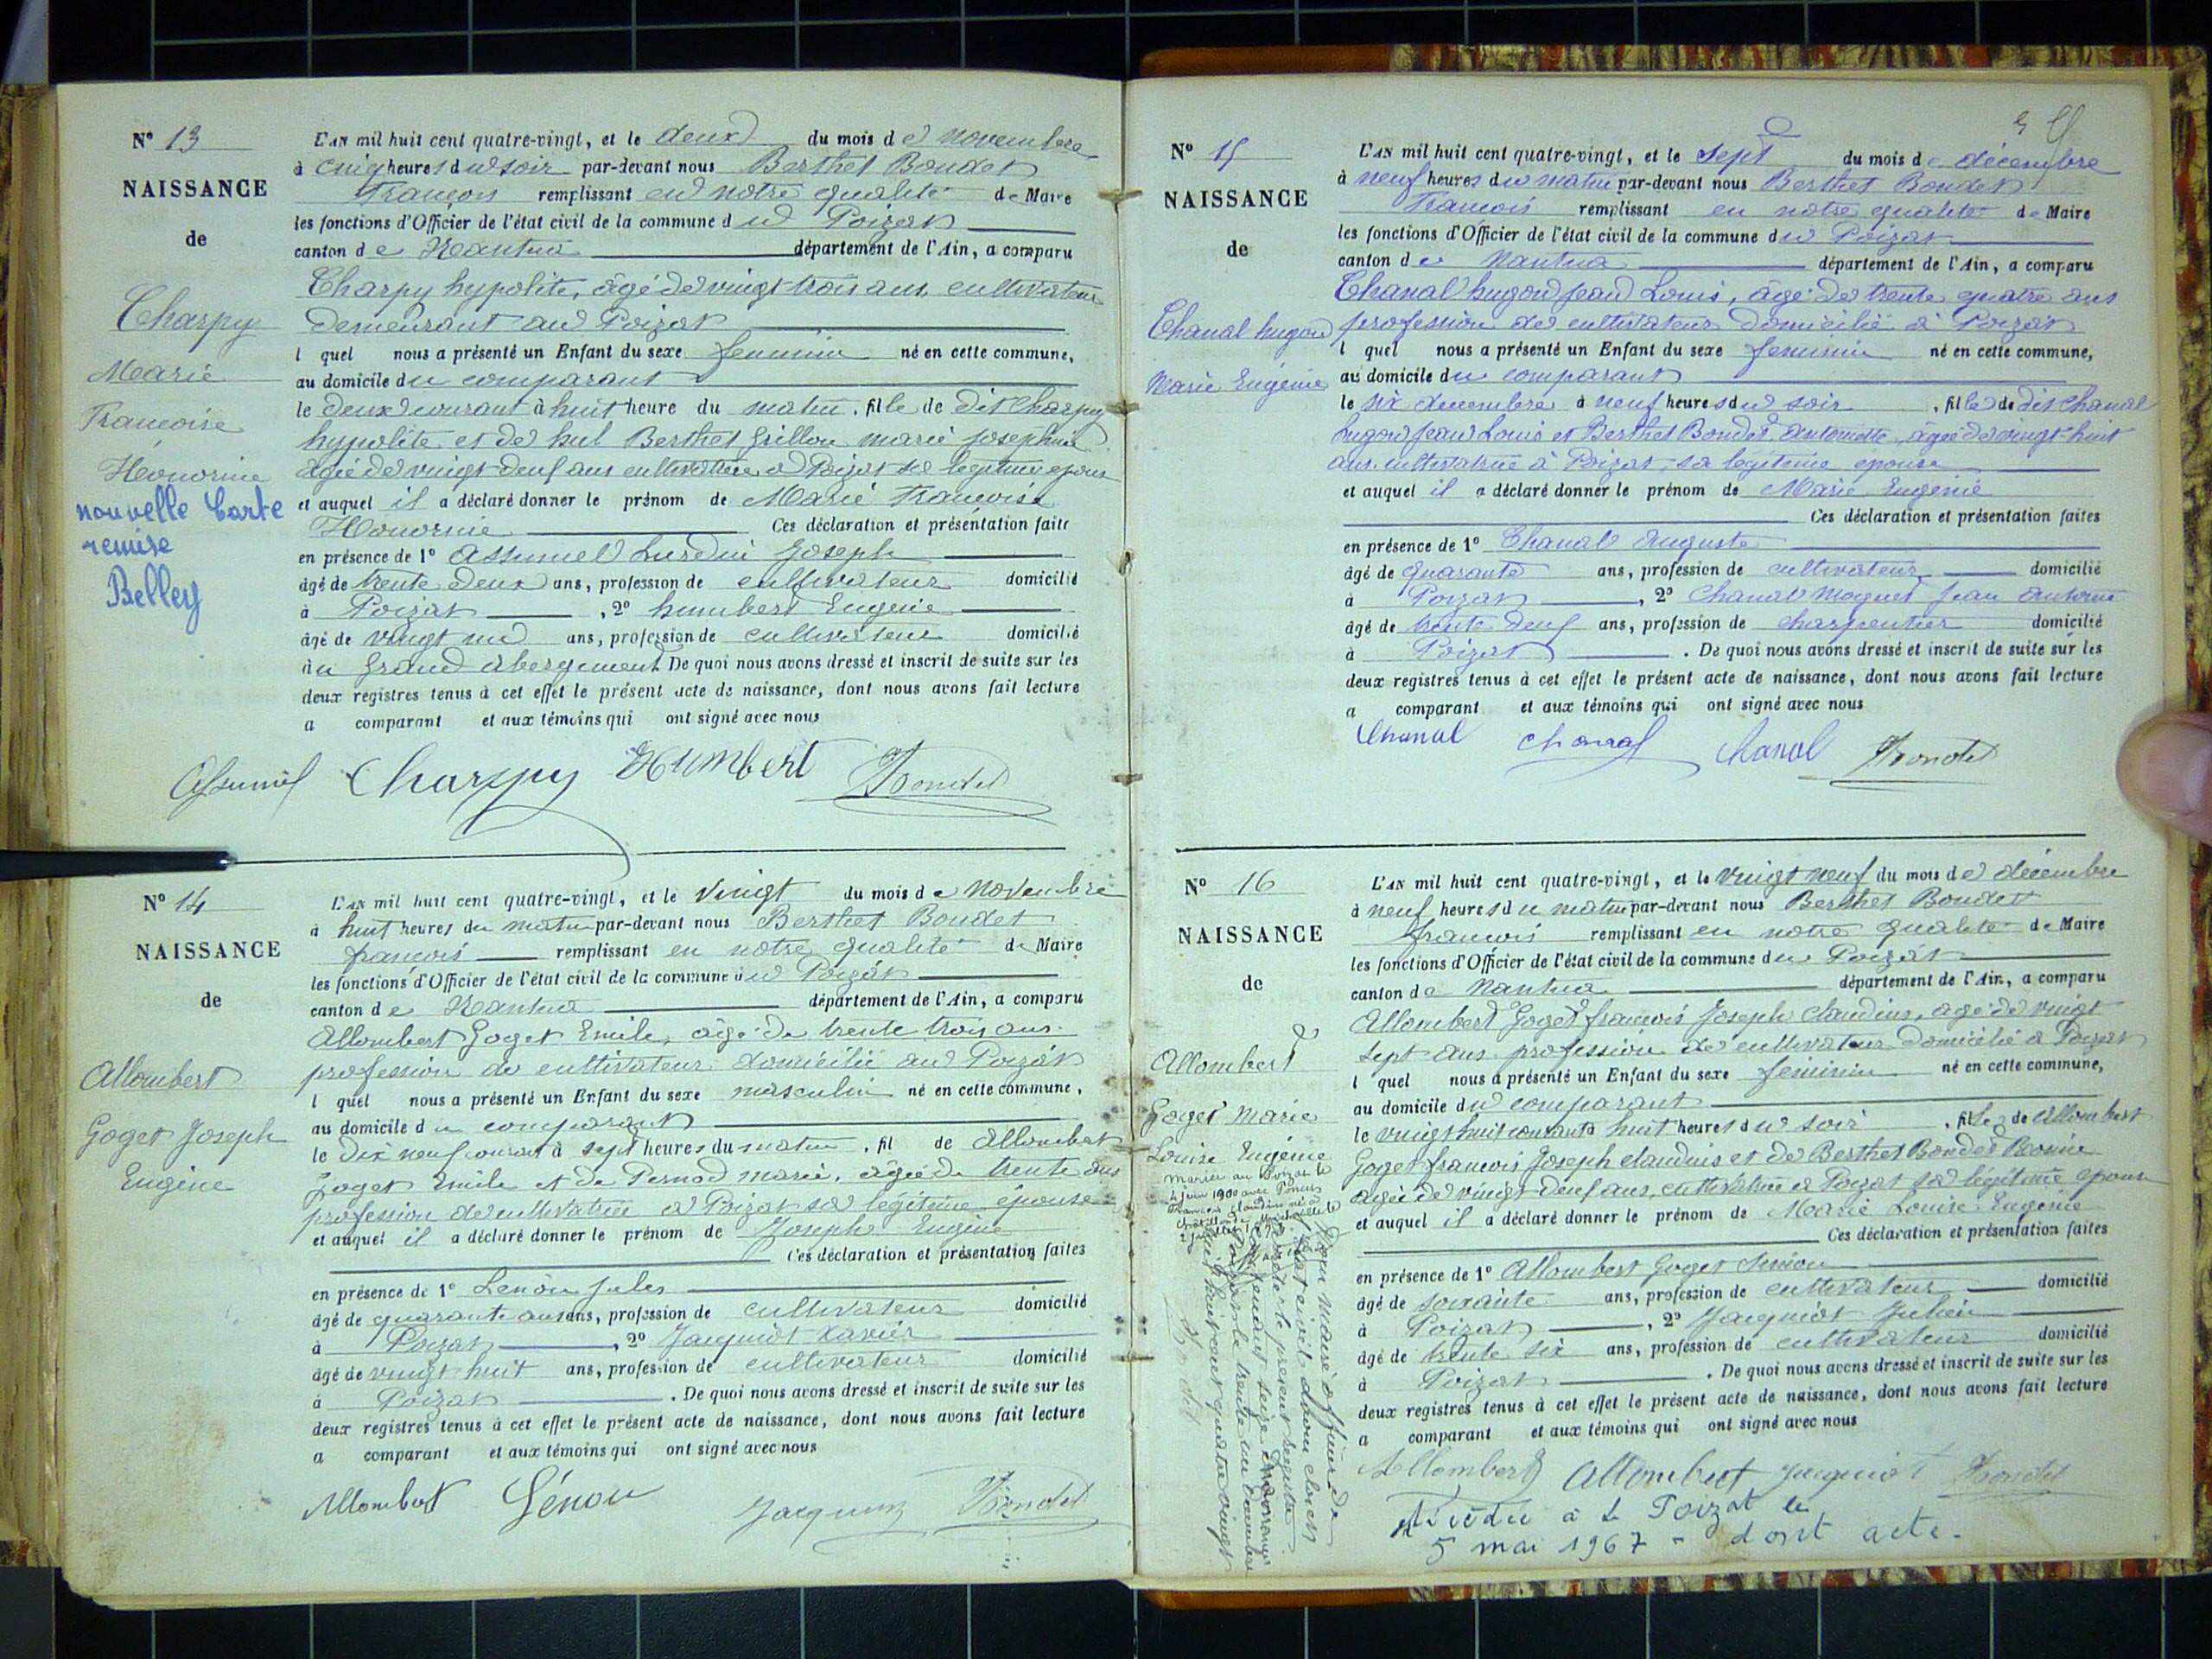 N° 13
NAISSANCE
de
Charpy
Marie
Francoise
Honorine
nouvelle Carte
remise
Belley
L'AN mil huit cent quatre-vingt, et le deux du mois de novembre
à cinq heures du soir par-devant nous Berthet Bondet
François remplissant en notre qualité de Maire
les fonctions d'Officier de l'état civil de la commune du Poizat
canton de Nantua département de l'Ain, a comparu
Charpy hypolite, âgé de vingt trois ans, cultivateur
demeurant au Poizat
l quel nous a présenté un Enfant du sexe feminin né en cette commune,
au domicile du comparant
le deux courant à huit heure du matin, fille de dit Charpy
hypolite et de Berthet Grillon marie josephine
agée de vingt deuf ans cultivatrice a Poizat sa legitime epouse
et auquel il a déclaré donner le prénom de Marie Francoise
Honorine Ces déclaration et présentation faite
en présence de 1° Assumel Lurdin Joseph
âgé de trente deux ans, profession de cultivateur domicilié
à Poizat, 2° humbert Eugenie
âgé de vingt un ans, profession de cultivateur domicilié
au Grand abergement De quoi nous avons dressé et inscrit de suite sur les
deux registres tenus à cet effet le présent acte de naissance, dont nous avons fait lecture
a comparant et aux témoins qui ont signé avec nous
Assumel Charpy Humbert Bondet
N° 14
NAISSANCE
de
Allombert
Goget Joseph
Eugène
L'AN mil huit cent quatre-vingt, et le vingt du mois de novembre
à huit heures du matin par-devant nous Berthet Bondet
françois remplissant en notre qualité de Maire
les fonctions d'Officier de l'état civil de la commune du Poizat
canton de Nantua département de l'Ain, a comparu
Allombert Goget Emile, âgé de trente trois ans
profession de cultivateur domicilié au Poizat
l quel nous a présenté un Enfant du sexe masculin né en cette commune,
au domicile du comparant
le dix neuf courant à sept heures du matin, fil de Allombert
Goget Emile et de Pernod marie, agée de trente ans
profession de cultivatrice a Poizat sa légitime épouse
et auquel il a déclaré donner le prénom de Joseph Eugène
Ces déclaration et présentation faites
en présence de 1° Lenou jules
âgé de quarante ans ans, profession de cultivateur domicilié
à Poizat, 2° Jacquiot Xavier
âgé de vingt huit ans, profession de cultivateur domicilié
à Poizat. De quoi nous avons dressé et inscrit de suite sur les
deux registres tenus à cet effet le présent acte de naissance, dont nous avons fait lecture
a comparant et aux témoins qui ont signé avec nous
Allombert Lénou Jacquiot Bondet
N° 15
NAISSANCE
de
Chanal hugon
Marie Eugénie
L'AN mil huit cent quatre-vingt, et le sept du mois de décembre
à neuf heures du matin par-devant nous Berthet Bondet
Francois remplissant en notre qualité de Maire
les fonctions d'Officier de l'état civil de la commune du Poizat
canton de Nantua département de l'Ain, a comparu
Chanal hugon jean Louis, âgé de trente quatre ans
profession de cultivateur domicilié à Poizat
l quel nous a présenté un Enfant du sexe feminin né en cette commune,
au domicile du comparant
le six decembre à neuf heures du soir, fille de dit Chanal
hugon jean Louis et Berthet Bondet antoinette, agée de vingt huit
ans, cultivatrice à Poizat, sa légitime épouse
et auquel il a déclaré donner le prénom de Marie Eugénie
Ces déclaration et présentation faites
en présence de 1° Chanal Auguste
âgé de quarante ans, profession de cultivateur domicilié
à Poizat, 2° Chanal Moquet jean antoine
âgé de trente deuf ans, profession de charpentier domicilié
à Poizat. De quoi nous avons dressé et inscrit de suite sur les
deux registres tenus à cet effet le présent acte de naissance, dont nous avons fait lecture
a comparant et aux témoins qui ont signé avec nous
Chanal Chanal Chanal Bondet
N° 16
NAISSANCE
de
Allombert
Goget Marie
Louise Eugénie
mariée au Poizat le
4 juin 1900 avec
L'AN mil huit cent quatre-vingt, et le vingt neuf du mois de décembre
à neuf heures du matin par-devant nous Berthet Bondet
francois remplissant en notre qualité de Maire
les fonctions d'Officier de l'état civil de la commune du Poizat
canton de Nantua département de l'Ain, a comparu
Allombert Goget françois Joseph claudius, agé de vingt
sept ans profession de cultivateur domicilié a Poizat
l quel nous a présenté un Enfant du sexe feminin né en cette commune,
au domicile du comparant
le vingt huit courant à huit heures du soir, fille de Allombert
Goget francois Joseph claudius et de Berthet Bondet
agée de vingt deuf ans, cultivatrice a Poizat sa légitime epouse
et auquel il a déclaré donner le prénom de Marie Louise Eugenie
Ces déclaration et présentation faites
en présence de 1° Allombert Goget Simon
âgé de soixante ans, profession de cultivateur domicilié
à Poizat, 2° Jacquiot Julien
âgé de trente six ans, profession de cultivateur domicilié
à Poizat. De quoi nous avons dressé et inscrit de suite sur les
deux registres tenus à cet effet le présent acte de naissance, dont nous avons fait lecture
a comparant et aux témoins qui ont signé avec nous
Allombert Allombert Jacquiot Bondet
Nous maire officier de
l'état civil avons clos et
arrêté le présent registre
contenant seize
Poizat le trente un decembre
mil huit cent quatre vingt
Bondet
à Le Poizat le
5 mai 1967 - dont acte.